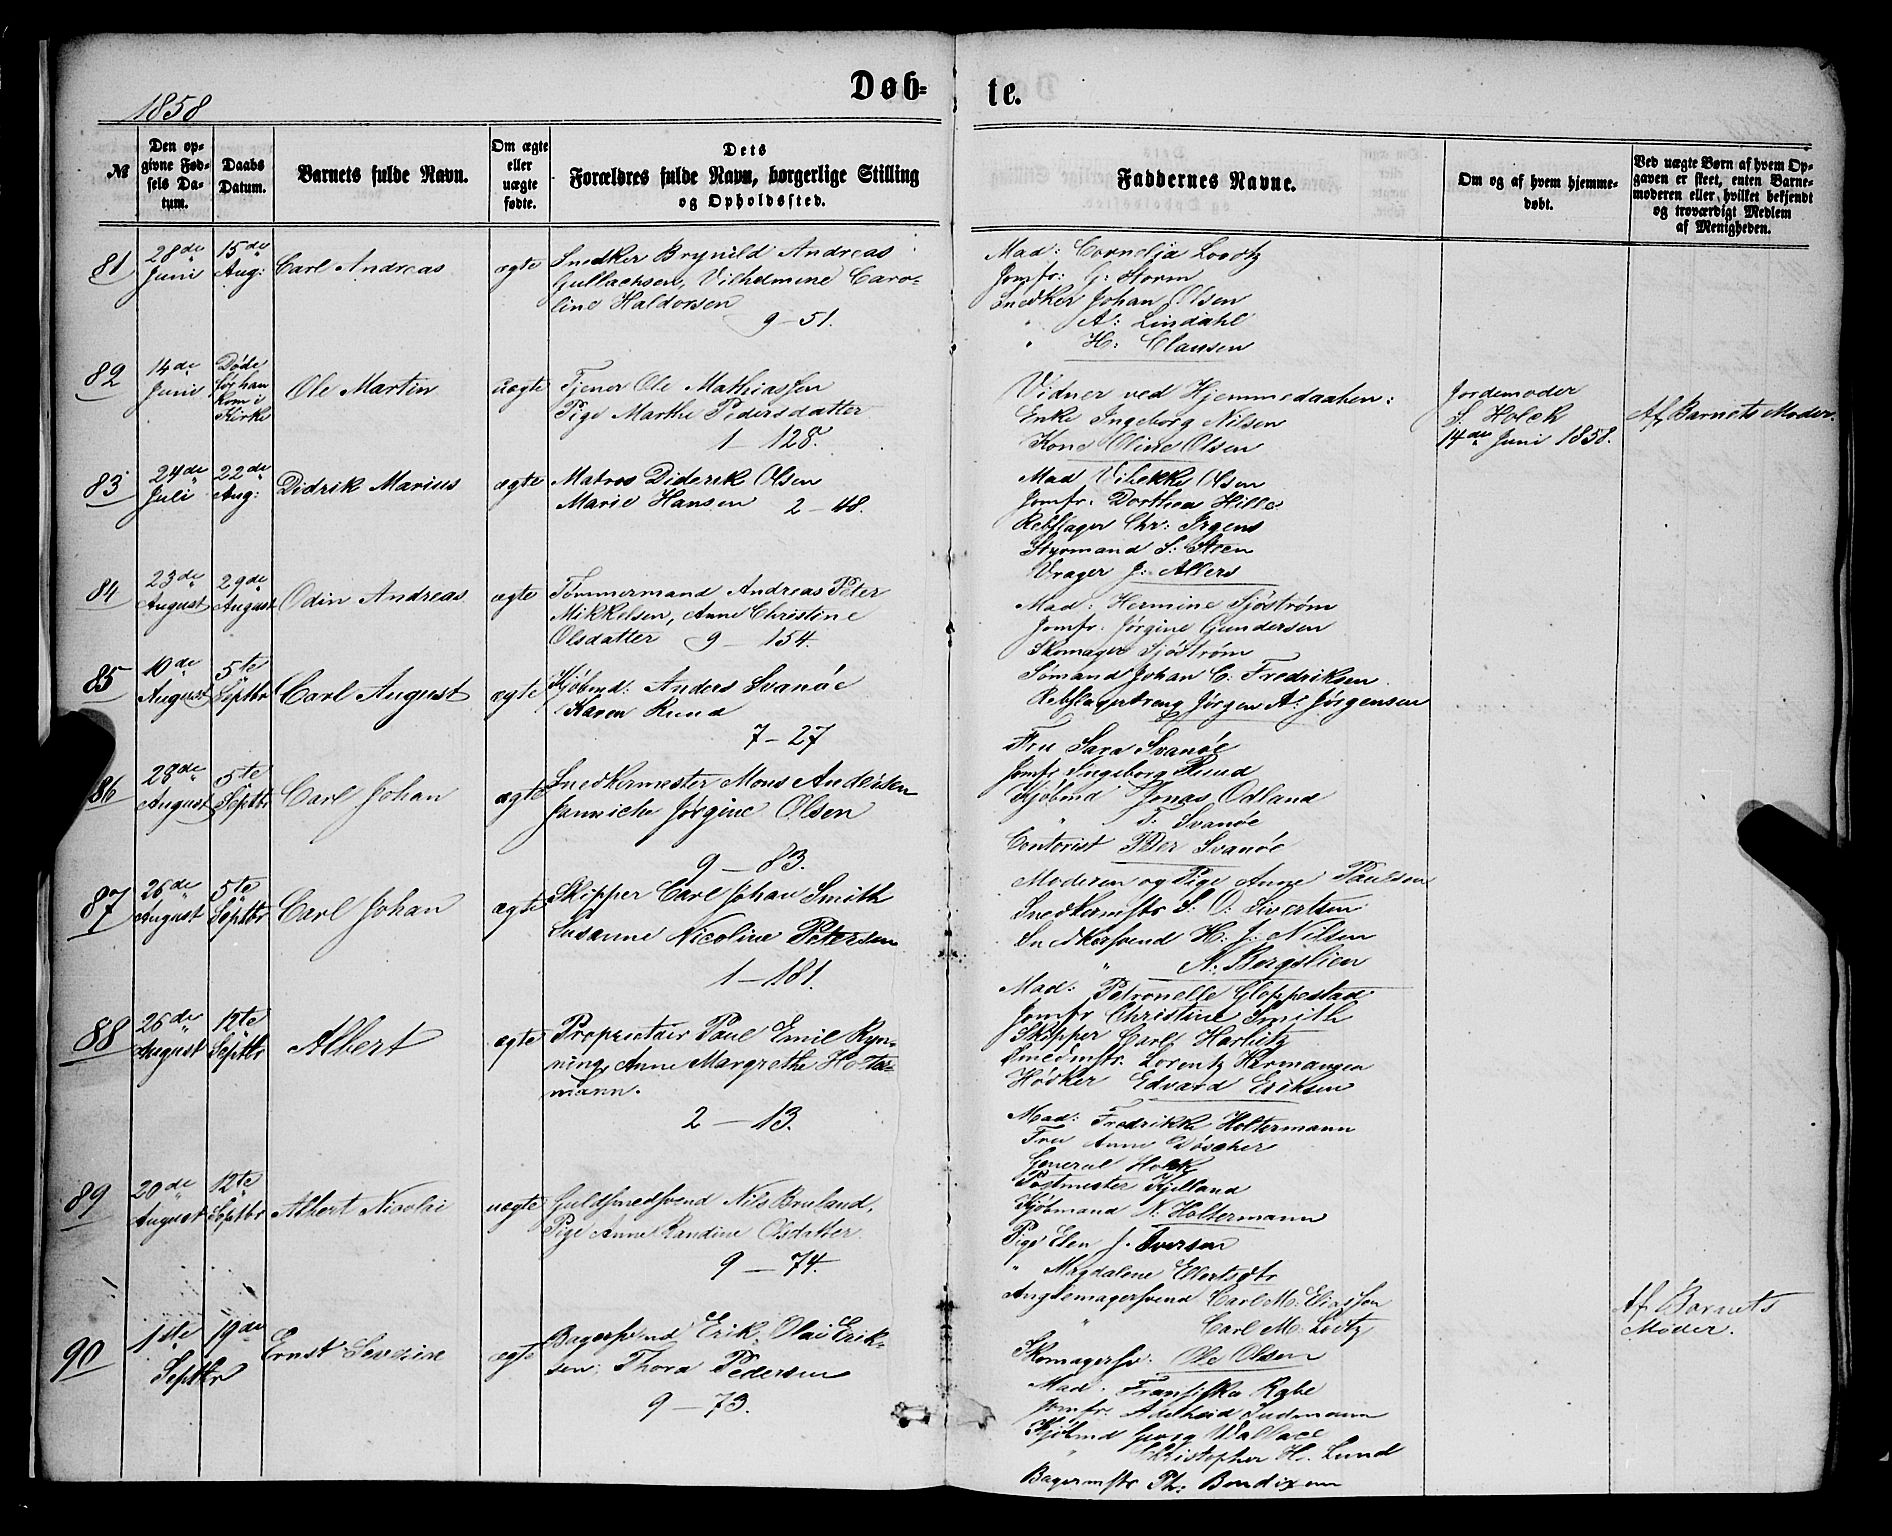 Døb-
te.
1858
№
Den op-
givne Fød-
sels Da-
tum.
Daabs
Datum.
Barnets fulde Navn.
Om ægte
eller
uægte
fødte.
Dets
Forældres fulde Navn, borgerlige Stilling
og Opholdssted.
Faddernes Navne.
Om og af hvem hjemme-
døbt.
Ved uægte Børn af hvem Op-
gaven er skeet, enten Barne-
moderen eller, hvilket bekjendt
og troværdigt Medlem
af Menigheden.
81
28de
Juni
15de
Aug:
Carl Andreas
ægte
Snedker Brynild Andreas
Gullachsen, Vilhelmine Caro-
line Haldorsen
9-51.
Mad: Cornelia Lootz
Jomfr: G: Storm
Snedker Johan Olsen
" A: Lindahl
" H: Clausen
82
14de
Juni
Døde
før han
kom i
Kirke
Ole Martin
uægte
Tjener Ole Mathiassen
Pige Marthe Pedersdatter
1-128.
Vidner ved Hjemmedaaben:
Enke Ingeborg Nilsen
Kone Oline Olsen
Jordemoder
S. Holck
14de Juni 1858.
Af Barnets Moder.
83
24de
Juli
22de
Aug:
Didrik Marius
ægte
Matros Diderik Olsen
Marie Hansen 2-48.
Mad Vibekke Olsen
Jomfr. Dorthea Hille
Rebslager Chr: Irgens
Styrmand S: Steen
Vrager J: Albers
84
23de
August
29de
August
Odin Andreas
ægte
Tømmermand Andreas Peter
Mikkelsen, Anne Christine
Olsdatter 9-154.
Mad: Hermine Sjöström
Jomfr. Jørgine Gundersen
Skomager Sjöström
Sømand Johan C. Fredriksen
Rebslagerdreng Jørgen A. Jørgensen
85
10de
August
5te
Septbr
Carl August
ægte
Kjøbmd: Anders Svanöe
Karen Rund
7-27
Fru Sara Svanöe
Jomfr Ingeborg Rund
Kjøbmd Jonas Odland
" T: Svanöe
Contorist Peter Svanöe
86
28de
August
5te
Septbr
Carl Johan
ægte
Snedkermester Mons Andersen
Jannicke Jørgine Olsen
9-83.
Moderen og Pige Anne Paulsen
Snedkermstr S: O: Sivertsen
Snedkersvend H. J: Nilsen
" A: Bergslien
87
26de
August
5te
Septbr
Carl Johan
ægte
Skipper Carl Johan Smith
Susanne Nicoline Petersen
1-181.
Mad: Petronelle Gloppestad
Jomfr Christine Smith
Skipper Carl Harlitz
Smedmstr. Lorentz Hermansen
Hødker Edvard Eriksen
88
26de
August
12te
Septbr
Albert
ægte
Proprietair Paul Emil Ryn-
ning, Anne Margrethe Holter-
mann.
2-13.
Mad: Fredrikke Holtermann
Fru Anne Döscher
General Holck
Postmester Kjelland
Kjøbmand N. Holtermann
89
20de
August
12te
Septbr
Albert Nicolai
uægte
Guldsmedsvend Nils Bruland,
Pige Anne Randine Olsdatter
9-74.
Pige Elen J. Iversen
" Magdalene Ellertsdtr
Carl M: Eliassen
" Carl M. Lootz
Skomagersv: Ole Olsen
Af Barnets
Moder.
90
1ste
Septbr
19de
Ernst Severin
ægte
Bagersvend Erik Olai Erik-
sen, Thora Pedersen
9-73.
Mad. Fransiska Rabe
Jomfr. Adelheid
Kjøbmd Georg Wallace
" Christopher H. Lund
Bagermstr Ph: Bendixen